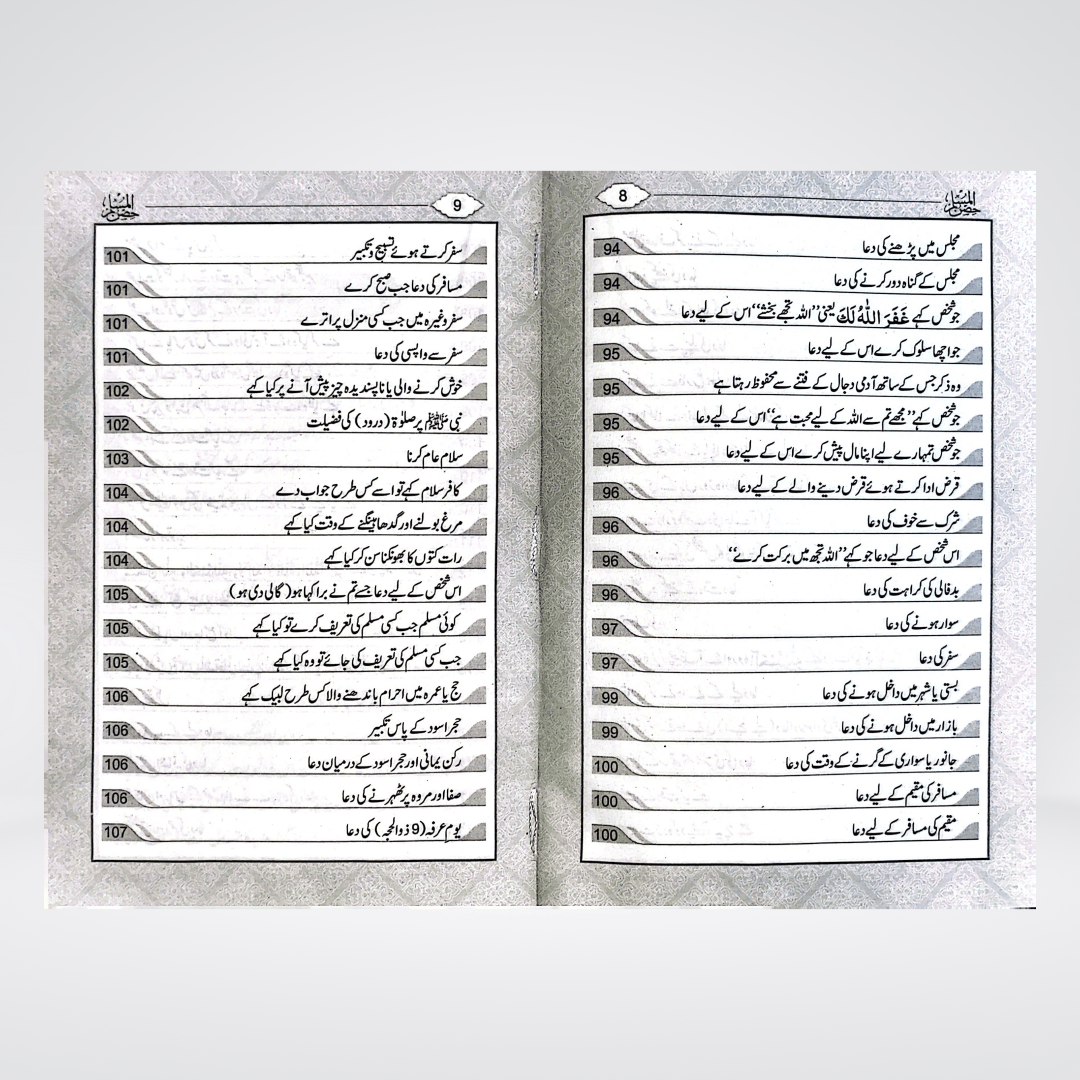 8
حصن المسلم
مجلس میں پڑھنے کی دعا 94
مجلس کے گناہ دور کرنے کی دعا 94
جو شخص کہے غَفَرَ اللّٰهُ لَكَ یعنی ’’اللہ تجھے بخشے‘‘ اس کے لیے دعا 94
جو اچھا سلوک کرے اس کے لیے دعا 95
وہ ذکر جس کے ساتھ آدمی دجال کے فتنے سے محفوظ رہتا ہے 95
جو شخص کہے ’’مجھے تم سے اللہ کے لیے محبت ہے‘‘ اس کے لیے دعا 95
جو شخص تمہارے لیے اپنا مال پیش کرے اس کے لیے دعا 95
قرض ادا کرتے ہوئے قرض دینے والے کے لیے دعا 96
شرک سے خوف کی دعا 96
اس شخص کے لیے دعا جو کہے ’’اللہ تجھ میں برکت کرے‘‘ 96
بدفالی کی کراہت کی دعا 96
سوار ہونے کی دعا 97
سفر کی دعا 97
بستی یا شہر میں داخل ہونے کی دعا 99
بازار میں داخل ہونے کی دعا 99
جانور یا سواری کے گرنے کے وقت کی دعا 100
مسافر کی مقیم کے لیے دعا 100
مقیم کی مسافر کے لیے دعا 100
9
حصن المسلم
سفر کرتے ہوئے تسبیح و تکبیر 101
مسافر کی دعا جب صبح کرے 101
سفر وغیرہ میں جب کسی منزل پر اترے 101
سفر سے واپسی کی دعا 101
خوش کرنے والی یا ناپسندیدہ چیز پیش آنے پر کیا کہے 102
نبی ﷺ پر صلوٰۃ (درود) کی فضیلت 102
سلام عام کرنا 103
کافر سلام کہے تو اسے کس طرح جواب دے 104
مرغ بولنے اور گدھا ہینگنے کے وقت کیا کہے 104
رات کتوں کا بھونکنا سن کر کیا کہے 104
اس شخص کے لیے دعا جسے تم نے برا کہا ہو (گالی دی ہو) 105
کوئی مسلم جب کسی مسلم کی تعریف کرے تو کیا کہے 105
جب کسی مسلم کی تعریف کی جائے تو وہ کیا کہے 105
حج یا عمرہ میں احرام باندھنے والا کس طرح لبیک کہے 106
حجر اسود کے پاس تکبیر 106
رکن یمانی اور حجر اسود کے درمیان دعا 106
صفا اور مروہ پر ٹھہرنے کی دعا 106
یومِ عرفہ (9 ذوالحجہ) کی دعا 107